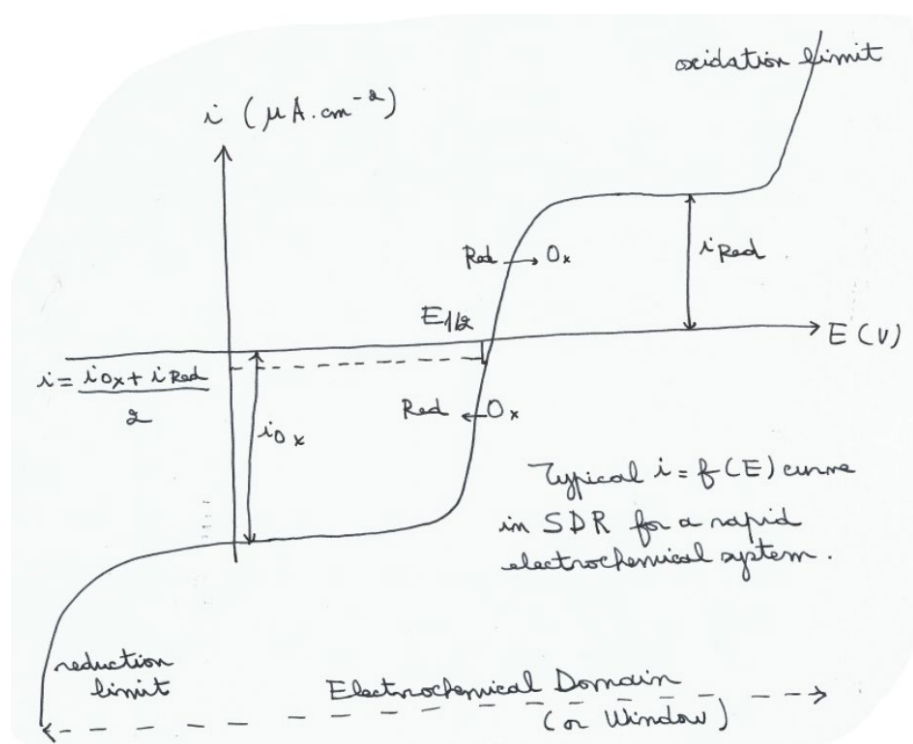 oxidation limit
i (μA.cm⁻²)
Red → Ox
i Red
E1/2
E (V)
i = iOx + iRed
2
iOx
Red ← Ox
Typical i = f(E) curve
in SDR for a rapid
electrochemical system.
reduction
limit
Electrochemical Domain
(or Window)